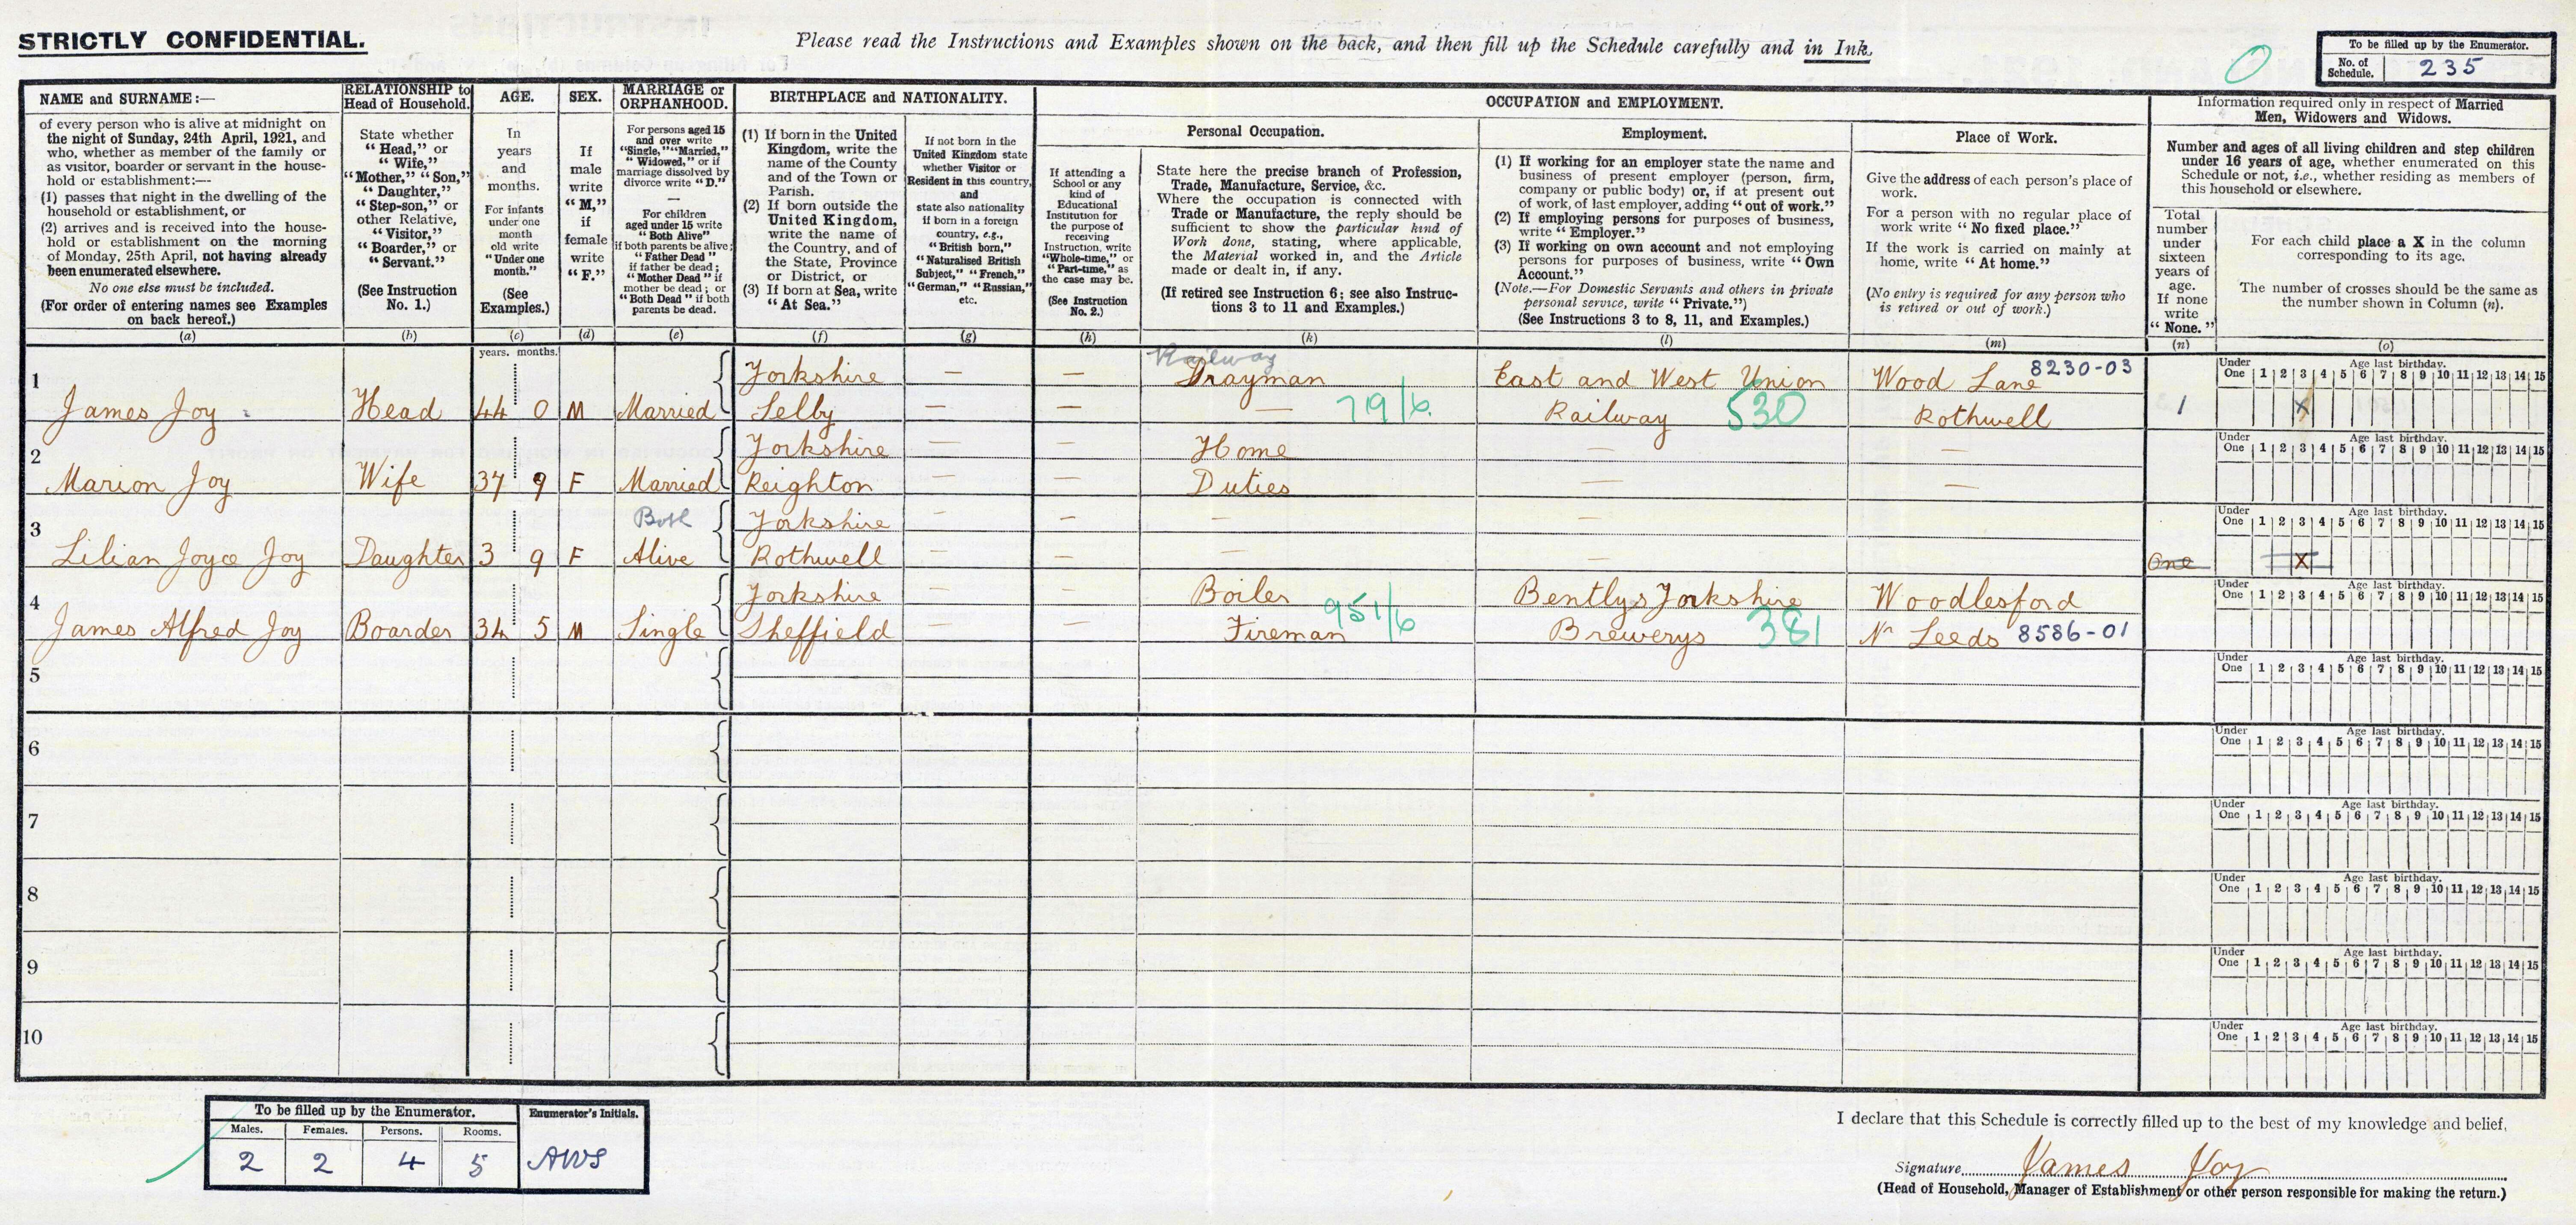 STRICTLY CONFIDENTIAL.
Please read the Instructions and Examples shown on the back, and then fill up the Schedule carefully and in Ink.
0
To be filled up by the Enumerator.
No. of Schedule. 235
NAME and SURNAME:—
of every person who is alive at midnight on
the night of Sunday, 24th April, 1921, and
who, whether as member of the family or
as visitor, boarder or servant in the house-
hold or establishment:—
(1) passes that night in the dwelling of the
household or establishment, or
(2) arrives and is received into the house-
hold or establishment on the morning
of Monday, 25th April, not having already
been enumerated elsewhere.
No one else must be included.
(For order of entering names see Examples
on back hereof.)
(a)
RELATIONSHIP to
Head of Household.
State whether
"Head," or
"Wife,"
"Mother," "Son,"
"Daughter,"
"Step-son," or
other Relative,
"Visitor,"
"Boarder," or
"Servant."
(See Instruction
No. 1.)
(b)
AGE.
In
years
and
months.
For infants
under one
month
old write
"Under one
month."
(See
Examples.)
(c)
SEX.
If
male
write
"M,"
if
female
write
"F."
(d)
MARRIAGE or
ORPHANHOOD.
For persons aged 15
and over write
"Single," "Married,"
"Widowed," or if
marriage dissolved by
divorce write "D."
—
For children
aged under 15 write
"Both Alive"
if both parents be alive;
"Father Dead"
if father be dead;
"Mother Dead" if
mother be dead; or
"Both Dead" if both
parents be dead.
(e)
BIRTHPLACE and NATIONALITY.
(1) If born in the United
Kingdom, write the
name of the County
and of the Town or
Parish.
(2) If born outside the
United Kingdom,
write the name of
the Country, and of
the State, Province
or District, or
(3) If born at Sea, write
"At Sea."
(f)
If not born in the
United Kingdom state
whether Visitor or
Resident in this country,
and
state also nationality
if born in a foreign
country, e.g.,
"British born,"
"Naturalised British
Subject," "French,"
"German," "Russian,"
etc.
(g)
OCCUPATION and EMPLOYMENT.
If attending a
School or any
kind of
Educational
Institution for
the purpose of
receiving
Instruction, write
"Whole-time," or
"Part-time," as
the case may be.
(See Instruction
No. 2.)
(h)
Personal Occupation.
State here the precise branch of Profession,
Trade, Manufacture, Service, &c.
Where the occupation is connected with
Trade or Manufacture, the reply should be
sufficient to show the particular kind of
Work done, stating, where applicable,
the Material worked in, and the Article
made or dealt in, if any.
(If retired see Instruction 6; see also Instruc-
tions 3 to 11 and Examples.)
(k)
Employment.
(1) If working for an employer state the name and
business of present employer (person, firm,
company or public body) or, if at present out
of work, of last employer, adding "out of work."
(2) If employing persons for purposes of business,
write "Employer."
(3) If working on own account and not employing
persons for purposes of business, write "Own
Account."
(Note.—For Domestic Servants and others in private
personal service, write "Private.")
(See Instructions 3 to 8, 11, and Examples.)
(l)
Place of Work.
Give the address of each person's place of
work.
For a person with no regular place of
work write "No fixed place."
If the work is carried on mainly at
home, write "At home."
(No entry is required for any person who
is retired or out of work.)
(m)
Information required only in respect of Married
Men, Widowers and Widows.
Number and ages of all living children and step children
under 16 years of age, whether enumerated on this
Schedule or not, i.e., whether residing as members of
this household or elsewhere.
Total
number
under
sixteen
years of
age.
If none
write
"None."
(n)
For each child place a X in the column
corresponding to its age.
The number of crosses should be the same as
the number shown in Column (n).
(o)
years. months.
1 Yorkshire — — Railway Drayman East and West Union Wood Lane 8230-03
James Joy Head 44 0 M Married Selby — — — 719/6. Railway 530 Rothwell 1 X
Under One Age last birthday. 1 2 3 4 5 6 7 8 9 10 11 12 13 14 15
2 Yorkshire — — Home — —
Marion Joy Wife 37 9 F Married Reighton — — Duties — —
Under One Age last birthday. 1 2 3 4 5 6 7 8 9 10 11 12 13 14 15
3 Both Yorkshire — — — —
Lilian Joyce Joy Daughter 3 9 F Alive Rothwell — — — — One X
Under One Age last birthday. 1 2 3 4 5 6 7 8 9 10 11 12 13 14 15
4 Yorkshire — — Boiler Bentlys Yorkshire Woodlesford
James Alfred Joy Boarder 34 5 M Single Sheffield — — Fireman 951/6 Brewerys 381 Nr Leeds 8586-01
Under One Age last birthday. 1 2 3 4 5 6 7 8 9 10 11 12 13 14 15
5
Under One Age last birthday. 1 2 3 4 5 6 7 8 9 10 11 12 13 14 15
6
Under One Age last birthday. 1 2 3 4 5 6 7 8 9 10 11 12 13 14 15
7
Under One Age last birthday. 1 2 3 4 5 6 7 8 9 10 11 12 13 14 15
8
Under One Age last birthday. 1 2 3 4 5 6 7 8 9 10 11 12 13 14 15
9
Under One Age last birthday. 1 2 3 4 5 6 7 8 9 10 11 12 13 14 15
10
Under One Age last birthday. 1 2 3 4 5 6 7 8 9 10 11 12 13 14 15
To be filled up by the Enumerator.
Males. Females. Persons. Rooms.
2 2 4 5
Enumerator's Initials.
AWS
I declare that this Schedule is correctly filled up to the best of my knowledge and belief,
Signature James Joy
(Head of Household, Manager of Establishment or other person responsible for making the return.)